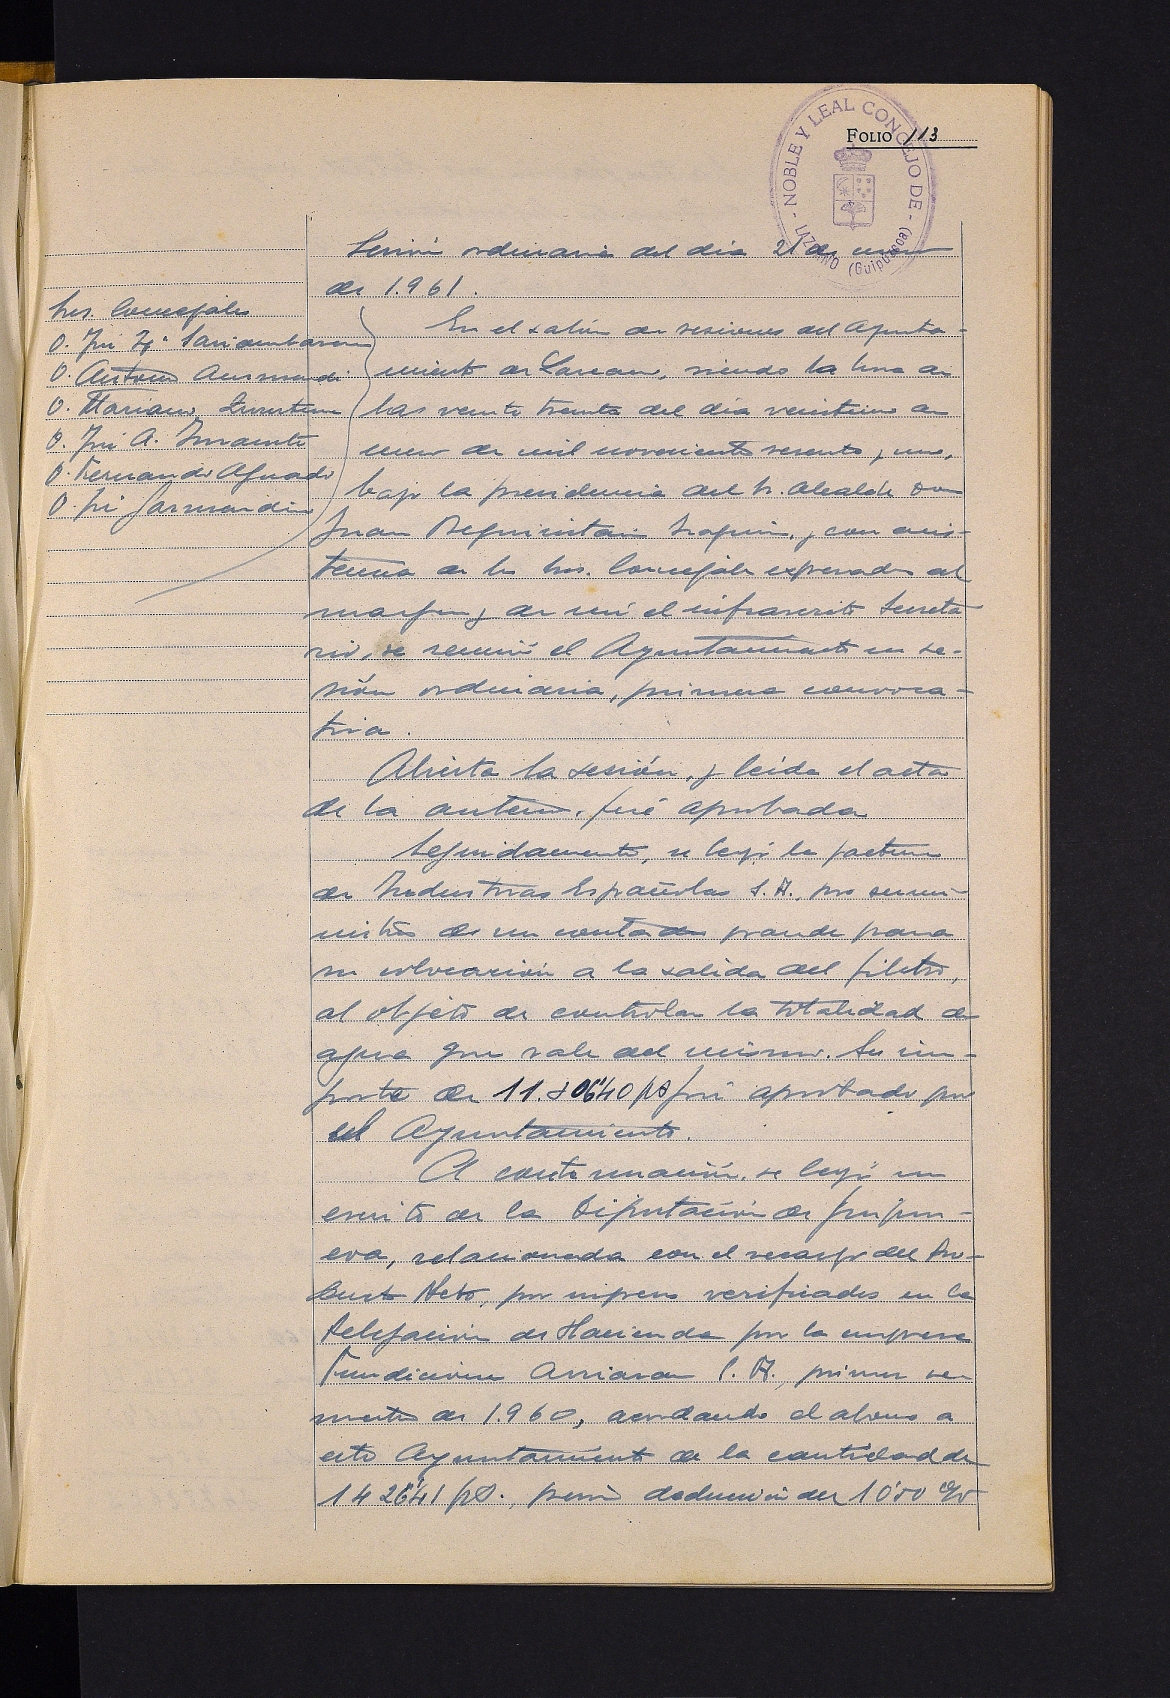 FOLIO 113
NOBLE Y LEAL CONCEJO DE
LAZCANO (Guipúzcoa)
Sesión ordinaria del dia 21 de enero
de 1.961.
Sres. Concejales
D. José
D. Antonio
D. Mariano
D. José A.
D. Fernando Aguado
D. José Garmendia
En el salón de sesiones del Ayunta-
miento de Lazcano, siendo la hora de
las veinte treinta del día veintiuno de
enero de mil novecientos sesenta y uno,
bajo la presidencia del Sr. Alcalde Don
Juan, y con asis-
tencia de los Sres. Concejales expresados al
margen y de mí el infrascrito Secreta
rio, se reunió el Ayuntamiento en se-
sión ordinaria, primera convoca-
toria.
Abierta la sesión, y leida el acta
de la anterior, fué aprobada
Seguidamente, se leyó la factura
de Industrias Españolas S.A., por sumi-
nistro de un contador grande para
su colocación a la salida del filtro,
al objeto de controlar la totalidad de
agua que sale del mismo. Su im-
porte de pts fué aprobado por
el Ayuntamiento.
A continuación, se leyó un
escrito de la Diputación de Guipuz-
coa, relacionada con el recargo del Pro-
ducto Neto, por ingreso verificados en la
Delegación de Hacienda por la empresa
Fundiciones Arriaran S.A., primer se
mestre de 1.960, acordando el abono a
este Ayuntamiento de la cantidad de
pts., previa deducción del 10'00 %